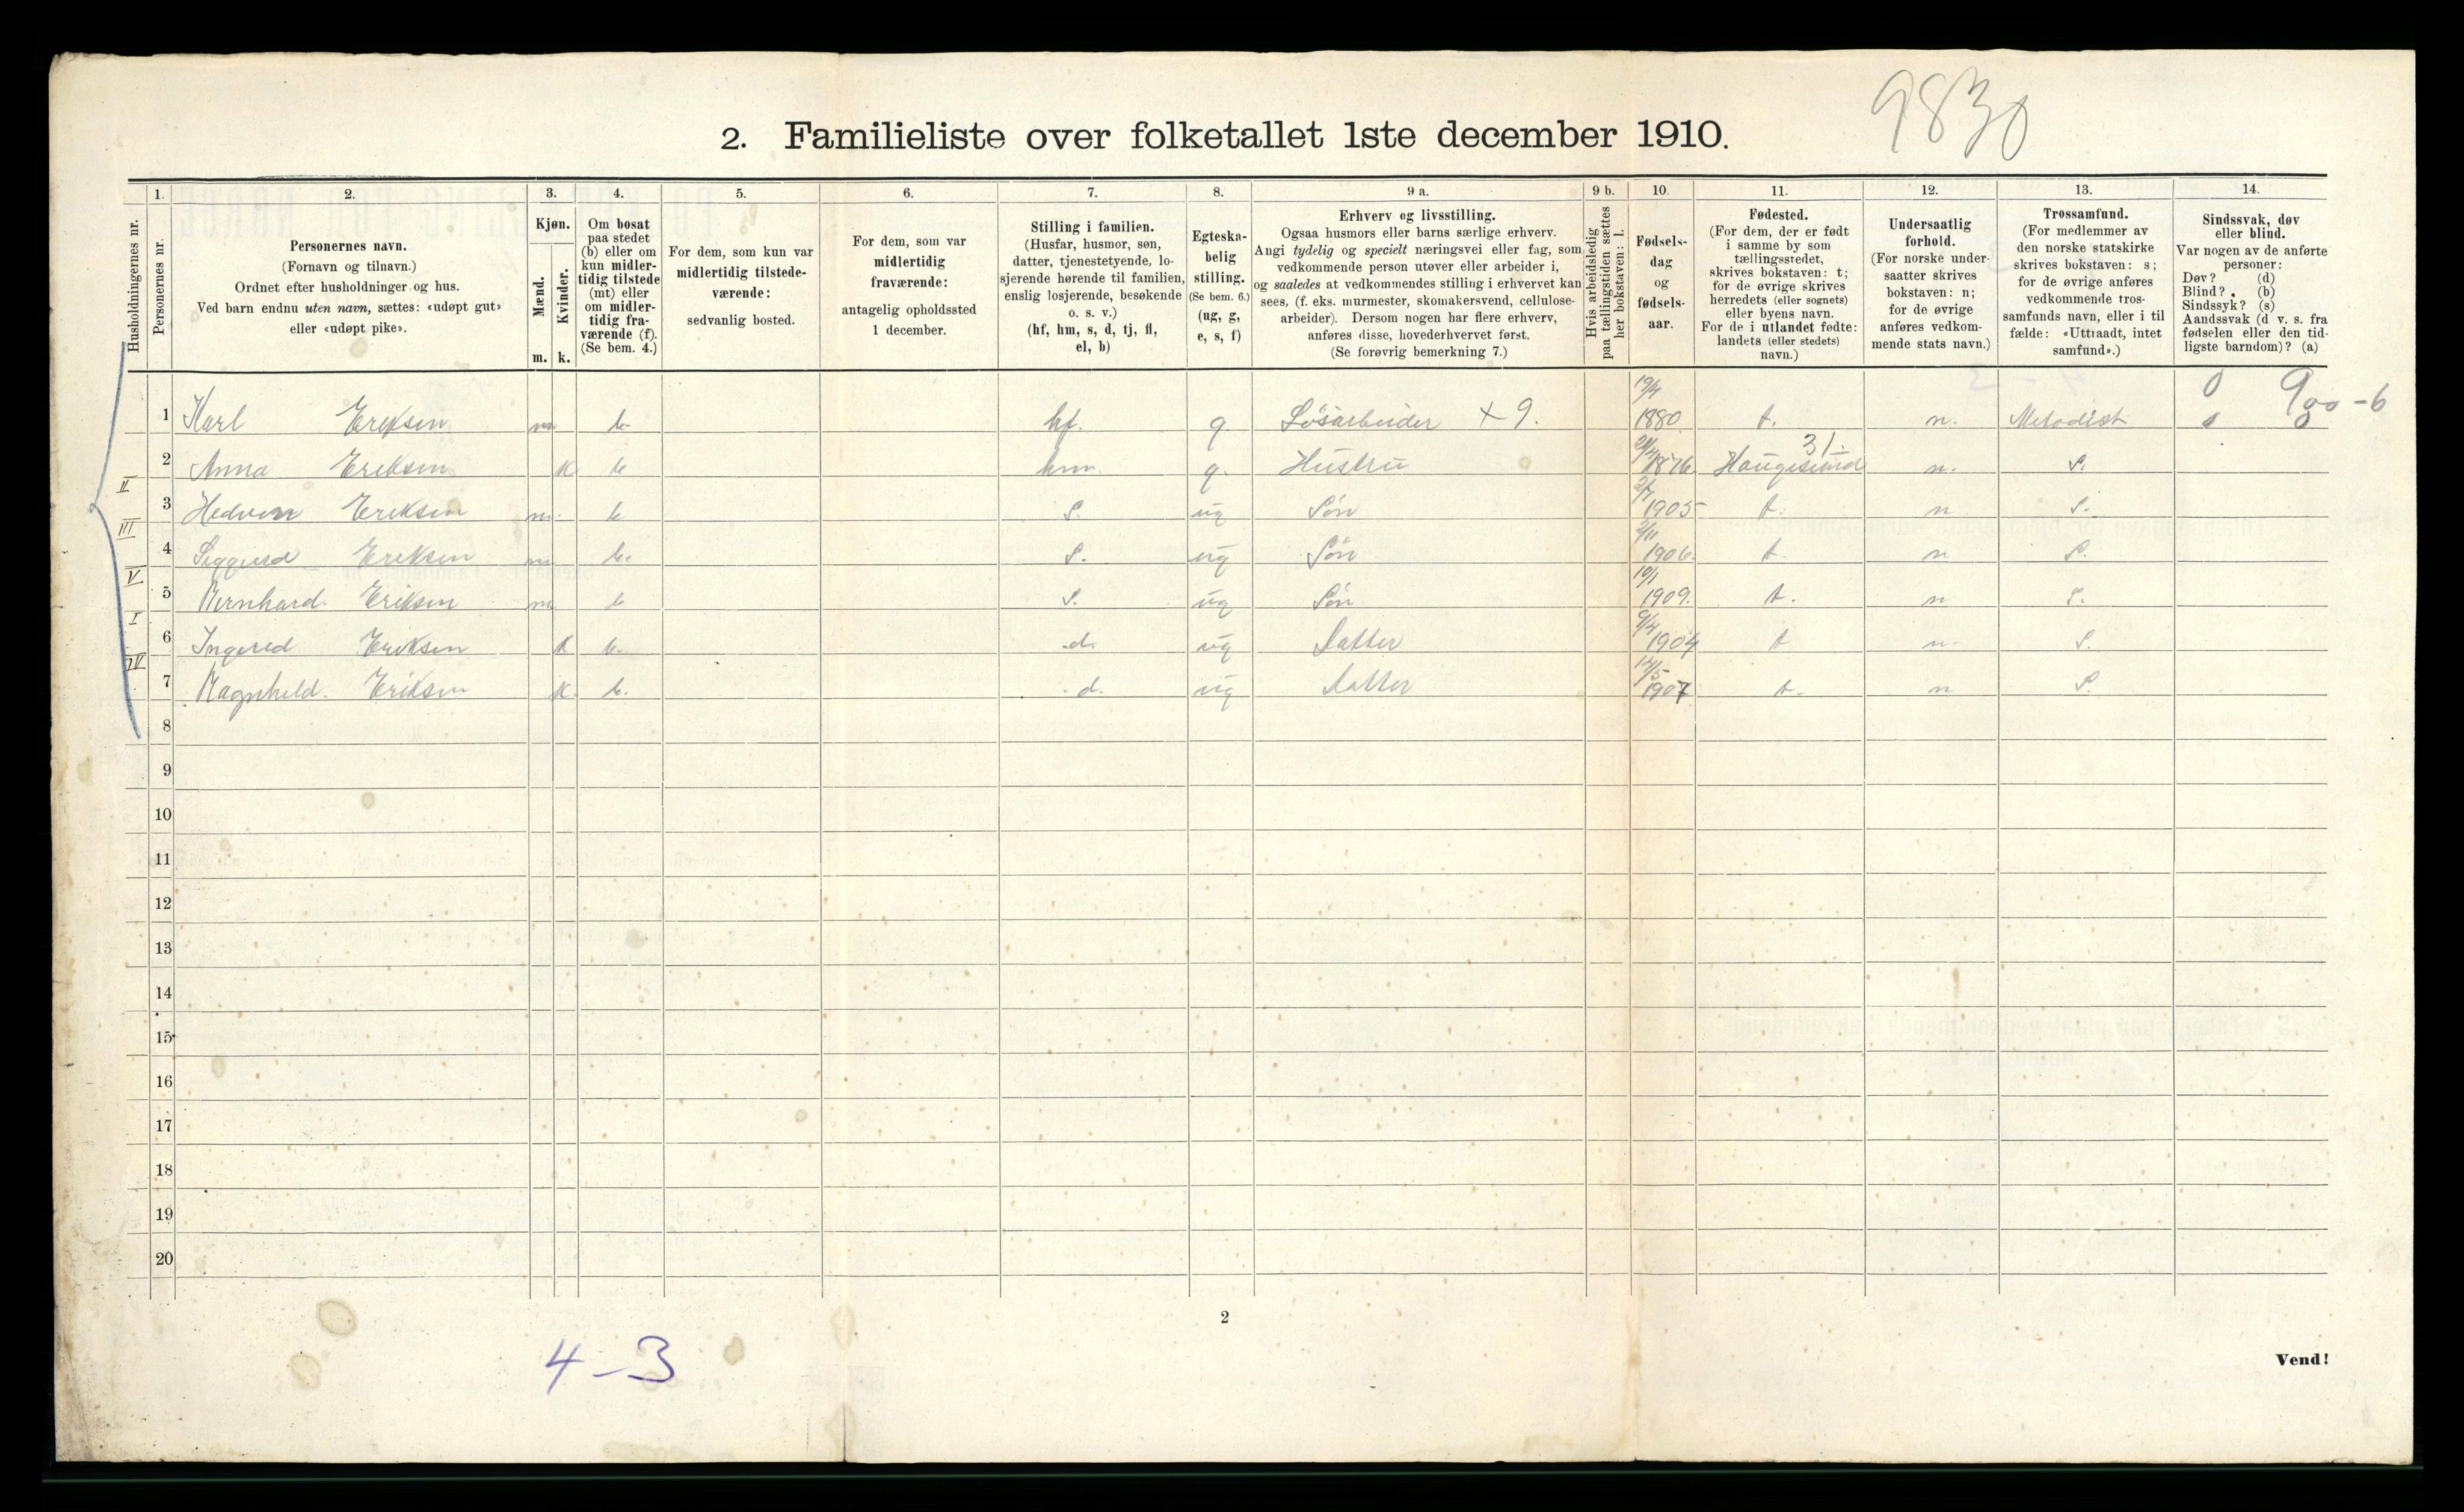 9830
2. Familieliste over folketallet 1ste december 1910.
Husholdningernes nr.
1.
Personernes nr.
2.
Personernes navn.
(Fornavn og tilnavn.)
Ordnet efter husholdninger og hus.
Ved barn endnu uten navn, sættes: «udøpt gut»
eller «udøpt pike».
3.
Kjøn.
Mænd.
m.
Kvinder.
k.
4.
Om bosat
paa stedet
(b) eller om
kun midler-
tidig tilstede
(mt) eller
om midler-
tidig fra-
værende (f).
(Se bem. 4.)
5.
For dem, som kun var
midlertidig tilstede-
værende:
sedvanlig bosted.
6.
For dem, som var
midlertidig
fraværende:
antagelig opholdssted
1 december.
7.
Stilling i familien.
(Husfar, husmor, søn,
datter, tjenestetyende, lo-
sjerende hørende til familien,
enslig losjerende, besøkende
o. s. v.)
(hf, hm, s, d, tj, fl,
el, b)
8.
Egteska-
belig
stilling.
(Se bem. 6.)
(ug, g,
e, s, f)
9 a.
Erhverv og livsstilling.
Ogsaa husmors eller barns særlige erhverv.
Angi tydelig og specielt næringsvei eller fag, som
vedkommende person utøver eller arbeider i,
og saaledes at vedkommendes stilling i erhvervet kan
sees, (f. eks. murmester, skomakersvend, cellulose-
arbeider). Dersom nogen har flere erhverv,
anføres disse, hovederhvervet først.
(Se forøvrig bemerkning 7.)
9 b.
Hvis arbeidsledig
paa tællingstiden sættes
her bokstaven: l.
10.
Fødsels-
dag
og
fødsels-
aar.
11.
Fødested.
(For dem, der er født
i samme by som
tællingsstedet,
skrives bokstaven: t;
for de øvrige skrives
herredets (eller sognets)
eller byens navn.
For de i utlandet fødte:
landets (eller stedets)
navn.)
12.
Undersaatlig
forhold.
(For norske under-
saatter skrives
bokstaven: n;
for de øvrige
anføres vedkom-
mende stats navn.)
13.
Trossamfund.
(For medlemmer av
den norske statskirke
skrives bokstaven: s;
for de øvrige anføres
vedkommende tros-
samfunds navn, eller i til
fælde: «Uttraadt, intet
samfund».)
14.
Sindssvak, døv
eller blind.
Var nogen av de anførte
personer:
Døv? (d)
Blind? (b)
Sindssyk? (s)
Aandssvak (d v. s. fra
fødselen eller den tid-
ligste barndom)? (a)
1 Karl Eriksen m b. hf. g Løsarbeider + 9. 1880. t. n. Metodist
2 Anna Eriksen k b hm. g. Hustru 1876 Haugesund 31 n. S.
II 3 Eriksen m. b S. ug Søn 2/7 1905 t. n S.
III 4 Eriksen m b. S. ug Søn 2/11 1906. t. n S.
V 5 Bernhard. Eriksen m b S. ug Søn 10/1 1909. t. n S.
I 6 Eriksen k b. d. ug Datter 9/4 1904 t n. S.
IV 7 Ragnhild. Eriksen k. b. d. ug Datter 1907 t. n S.
8
9
10
11
12
13
14
15
16
17
18
19
20
2
4-3
Vend!